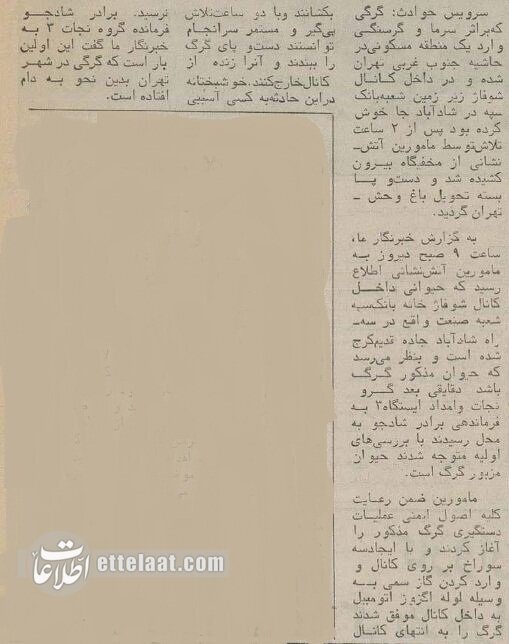 سرویس حوادث: گرگی
که‌براثر سرما و گرسنگی
وارد یک منطقه مسکونی‌در
حاشیه جنوب غربی تهران
شده و در داخل کانال
شوفاژ زیر زمین شعبه‌بانک
سپه در شادآباد جا خوش
کرده بود پس از ۲ ساعت
تلاش‌توسط مامورین آتش‌ـ
نشانی از مخفیگاه بیرون
کشیده شد و دست‌و پا
بسته تحویل باغ وحش ـ
تهران گردید.
به گزارش خبرنگار ما،
ساعت ۹ صبح دیروز به
مامورین آتش‌نشانی اطلاع
رسید که حیوانی داخل
کانال شوفاژ خانه بانک‌سپه
شعبه صنعت واقع در سه‌ـ
راه شادآباد جاده قدیم‌کرج
شده است و بنظر می‌رسد
که حیوان مذکور گرگ
باشد دقایقی بعد گرو
نجات وامداد ایستگاه۳ به
فرماندهی برادر شادجو به
محل رسیدند با بررسی‌های
اولیه متوجه شدند حیوان
مزبور گرگ است.
مامورین ضمن رعایت
کلیه اصول ایمنی عملیات
دستگیری گرگ مذکور را
آغاز کردند و با ایجادسه
سوراخ بر روی کانال و
وارد کردن گاز سمی به
وسیله لوله اگزوز اتومبیل
به داخل کانال موفق شدند
گرگ را به انتهای کانال
بکشانند وبا دو ساعت‌تلاش
پی‌گیر و مستمر سرانجام
توانستند دست‌و پای گرگ
را ببندند و آنرا زنده از
کانال‌خارج‌کنند.خوشبختانه
دراین حادثه‌به کسی آسیبی
نرسید. برادر شادجو
فرمانده گروه نجات ۳ به
خبرنگار ما گفت این اولین
بار است که گرگی در شهر
تهران بدین نحو به دام
افتاده است.
اطلاعات ettelaat.com